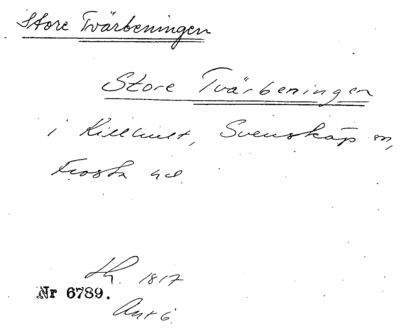 Store Tvärbeningen
Store Tvärbeningen
i Killhult, Svensköp sn,
Frosta hd
Lh. 1817
Nr 6789.
Akt 6